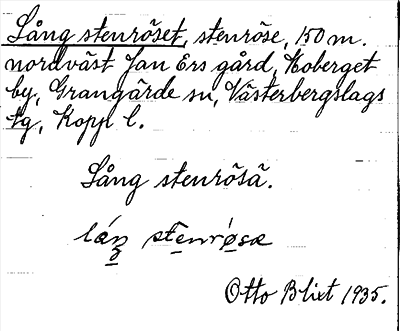 Lång stenröset, stenröse, 150 m.
nordväst Jan Ers gård, Koberget
by, Grangärde sn, Västerbergslags
tg, Kopp l.
Lång stenrösä.
Otto Blixt 1935.